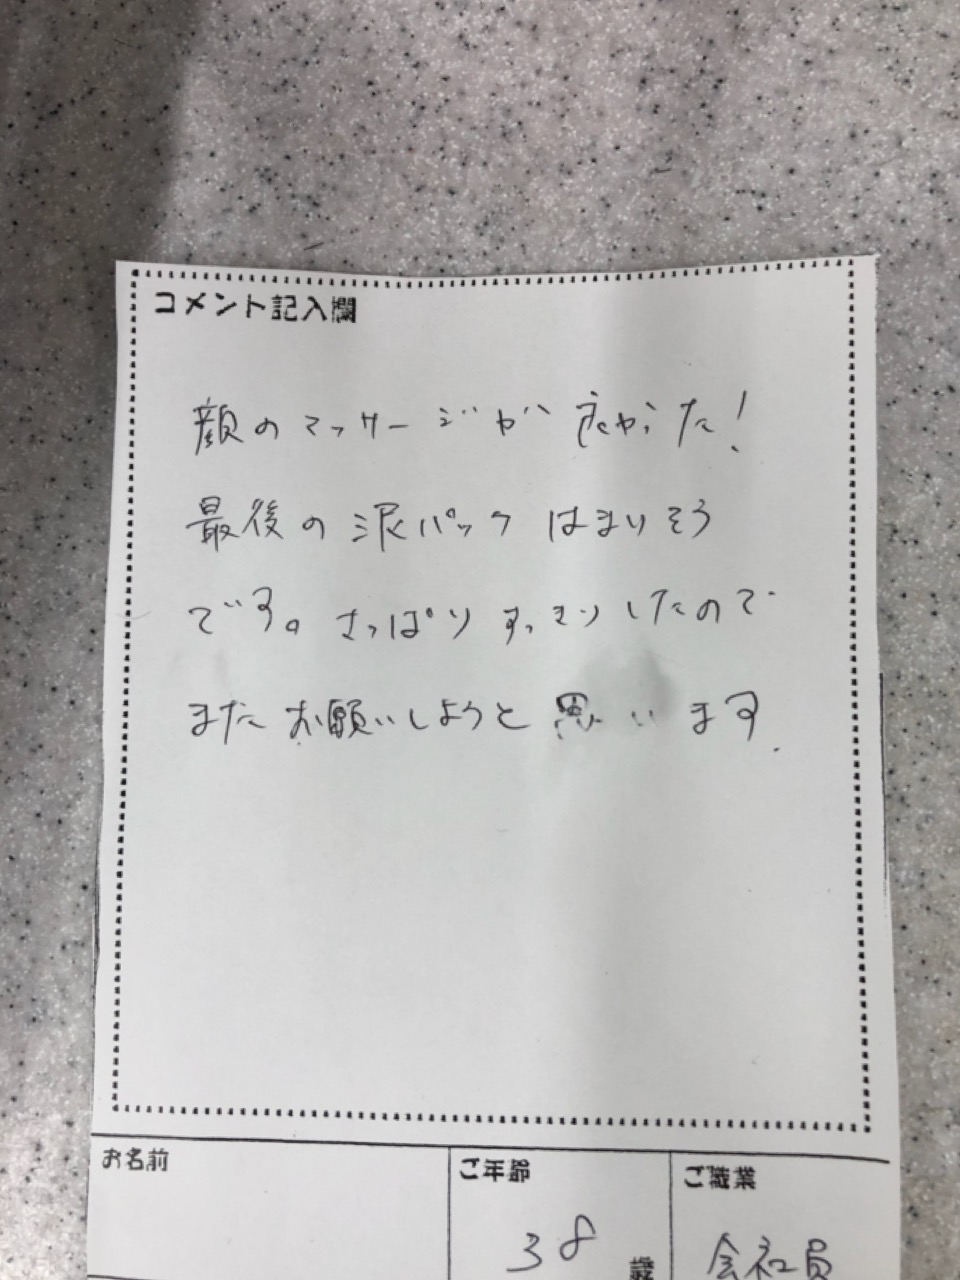 コメント記入欄
顔のマッサージが良かった!
最後の泥パックはまりそう
です。さっぱりすっきりしたので
またお願いしようと思います.
お名前
ご年齢
ご職業
38 歳
会社員